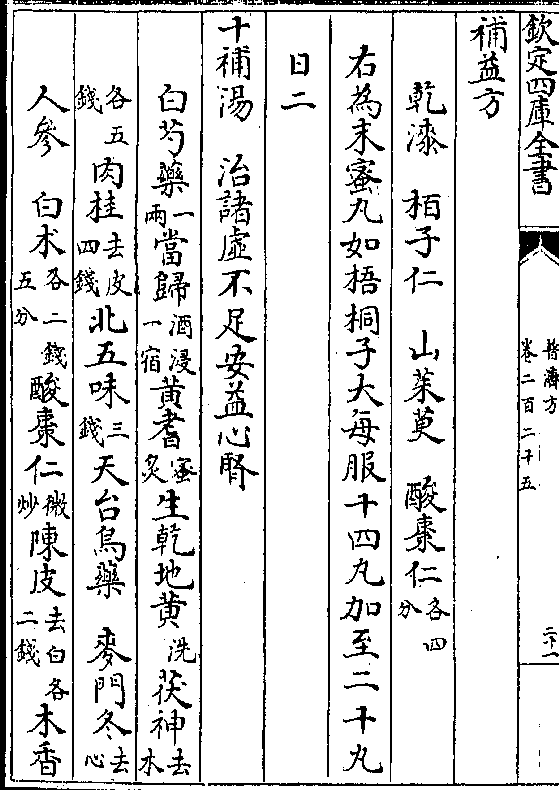 欽定四庫全書
普濟方
卷二百二十五
補益方
乾漆　栢子仁　山茱萸　酸棗仁各四分
右為末蜜丸如梧桐子大每服十四丸加至二十丸
日二
十補湯　治諸虛不足安益心腎
白芍藥一兩當歸酒浸一宿黄耆蜜炙生乾地黄洗茯神去木
各五錢肉桂去皮四錢北五味三錢天台烏藥　麥門冬去心
人參　白术各二錢五分酸棗仁微炒陳皮去白各二錢木香